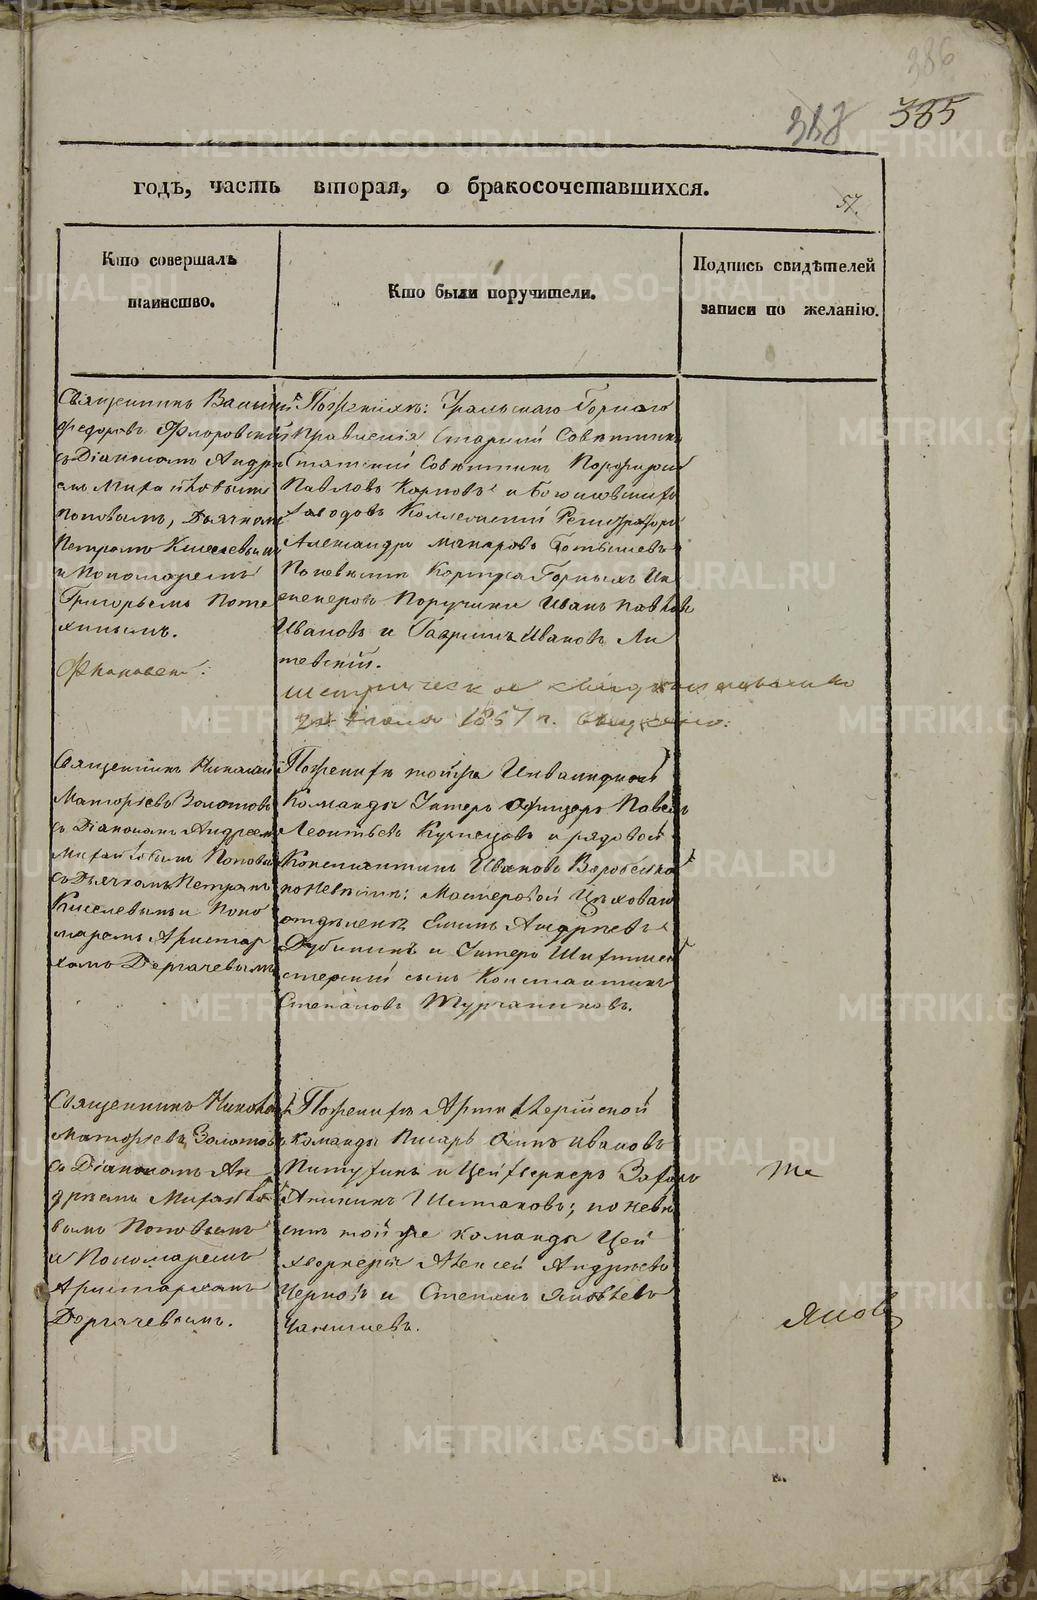 386
385
годъ, часть вторая, о бракосочетавшихся.
57.
Кто совершалъ
таинство.
Кто были поручители.
Подпись свидѣтелей
записи по желанію.
Священникъ
Федоровъ Флоровскій
съ Діакономъ Андре
емъ Михайловымъ
Поповымъ, Дьячкомъ
Петромъ Киселевымъ
и Пономаремъ
Григорьемъ Поте
хинымъ.
По женихѣ: Уральскаго Горнаго
Правленія Старшій Совѣтникъ
Статскій Совѣтникъ Порфирій
Павловъ Карповъ и Богословскихъ
Заводовъ Коллежскій Регистраторъ
Александръ Макаровъ
По невѣстѣ Корпуса Горныхъ Ин
женеровъ Поручики Иванъ Павловъ
Ивановъ и Гавріилъ Ивановъ Ли
тевскій.
1857 г.
Священникъ Николай
Матфіевъ Золотовъ
съ Діакономъ Андреемъ
Михайловымъ Поповымъ
съ Дьячкомъ Петромъ
Киселевымъ и Поно
маремъ Аристар
хомъ Дергачевымъ
По женихѣ тойже Инвалидной
Команды Унтеръ Офицеръ Павелъ
Леонтьевъ Кузнецовъ и рядовой
Константинъ Ивановъ
по невѣстѣ: Мастеровой Цѣховаго
отдѣленія Ефимъ Андрѣевъ
Дубининъ и Унтеръ Шихтмей
стерскій сынъ Константинъ
Степановъ
Священникъ Николай
Матфіевъ Золотовъ
съ Діакономъ Ан
дреемъ Михайло
вымъ Поповымъ
и Пономаремъ
Аристархомъ
Дергачевымъ.
По женихѣ Артиллерійской
команды Писарь Осипъ Ивановъ
и Цейхвертеръ Захаръ
Аникинъ Шестаковъ; по невѣ
стѣ той же команды Цей
хвертеры Алексей Андреевъ
Черновъ и Степанъ Яковлевъ
METRIKI.GASO-URAL.RU